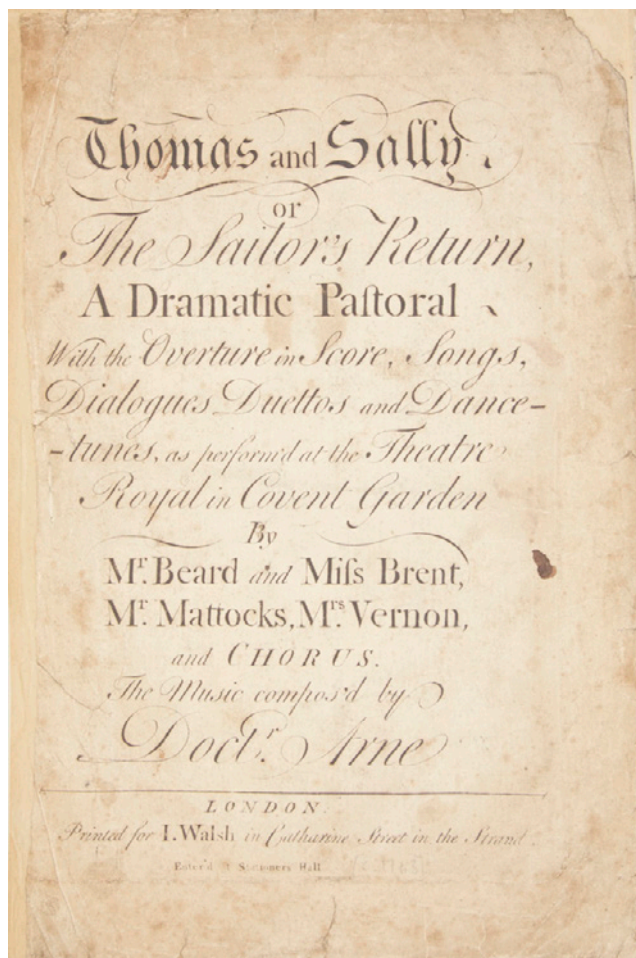 Thomas and Sally.
or
The Sailor's Return,
A Dramatic Paſtoral
With the Overture in Score, Songs,
Dialogues, Duettos and Dance-
-tunes, as perform'd at the Theatre
Royal in Covent Garden
By
Mr. Beard and Miſs Brent,
Mr. Mattocks, Mrs. Vernon,
and CHORUS.
The Music compos'd by
Doctr. Arne
LONDON.
Printed for I. Walsh in Catharine Street in the Strand.
Enter'd at Stationers Hall